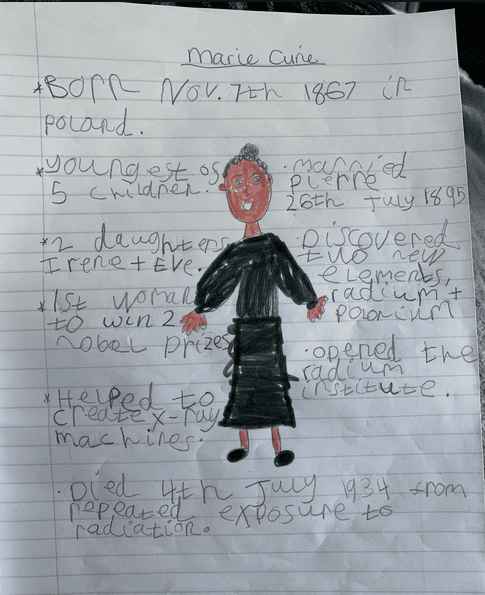 Marie Curie
*Born Nov. 7th 1867 in
poland.
*youngest os
5 children.
*2 daughters
Irene + Eve.
*1st woman
to win 2
nobel prizes
*Helped to
create x-ray
machines.
·married
pierre
26th July 1895
·Discovered
two new
elements,
radium +
polonium
·opened the
radium
institute.
·Died 4th July 1934 from
repeated exposure to
radiation.